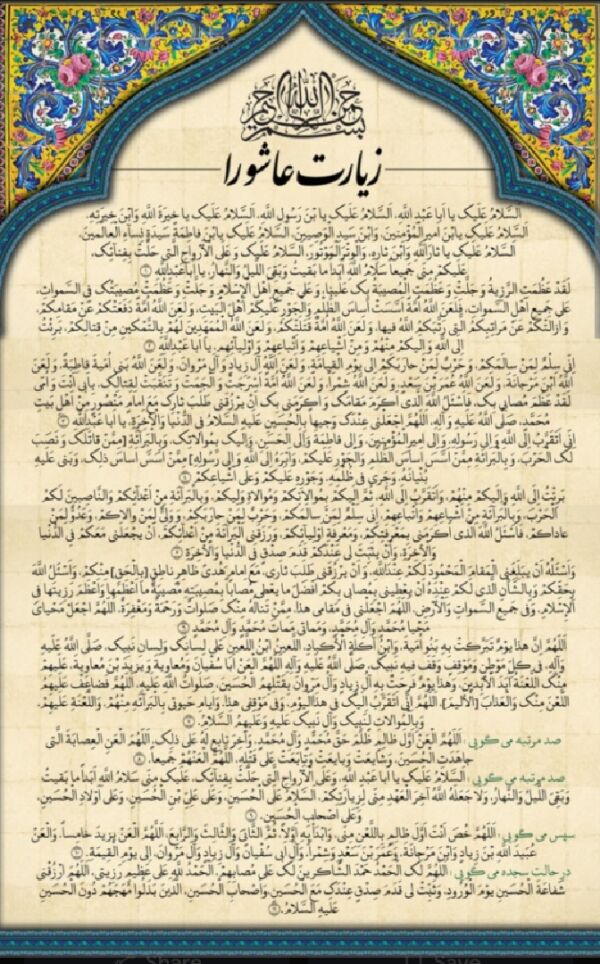 بسم الله الرحمن الرحیم
زیارت عاشورا
اَلسَّلامُ عَلَیْکَ یا اَبا عَبْدِ اللهِ، اَلسَّلامُ عَلَیْکَ یا بْنَ رَسُولِ اللهِ، اَلسَّلامُ عَلَیْکَ یا خِیَرَةَ اللهِ وَابْنَ خِیَرَتِهِ،
اَلسَّلامُ عَلَیْکَ یابْنَ امیرِالْمُؤْمِنینَ، وَابْنَ سَیِّدِ الْوَصِیّینَ، اَلسَّلامُ عَلَیْکَ یابْنَ فاطِمَةَ سَیِّدَةِ نِسآءِ الْعالَمینَ،
اَلسَّلامُ عَلَیْکَ یا ثارَاللهِ وَابْنَ ثارِهِ، وَالْوِتْرَالْمَوْتُورَ، اَلسَّلامُ عَلَیْکَ وَ عَلَی الْاَرْواحِ الَّتی حَلَّتْ بِفِنآئِکَ،
عَلَیْکُمْ مِنّی جَمیعاً سَلامُ اللهِ اَبَداً ما بَقیتُ وَبَقِیَ اللَّیْلُ وَالنَّهارُ، یا اَباعَبْدِاللهِ
لَقَدْ عَظُمَتِ الرَّزِیَّةُ وَ جَلَّتْ وَ عَظُمَتِ الْمُصیبَةُ بِکَ عَلَیْنا، وَ عَلی جَمیعِ اَهْلِ الْاِسْلامِ، وَ جَلَّتْ وَ عَظُمَتْ مُصیبَتُکَ فِی السَّمواتِ،
عَلی جَمیعِ اَهْلِ السَّمواتِ، فَلَعَنَ اللهُ اُمَّةً اَسَّسَتْ اَساسَ الظُّلْمِ وَالْجَوْرِ عَلَیْکُمْ اَهْلَ الْبَیْتِ، وَ لَعَنَ اللهُ اُمَّةً دَفَعَتْکُمْ عَنْ مَقامِکُمْ،
وَ اَزالَتْکُمْ عَنْ مَراتِبِکُمُ الَّتی رَتَّبَکُمُ اللهُ فیها، وَ لَعَنَ اللهُ اُمَّةً قَتَلَتْکُمْ، وَ لَعَنَ اللهُ الْمُمَهِّدینَ لَهُمْ بِالتَّمْکینِ مِنْ قِتالِکُمْ، بَرِئْتُ
اِلَی اللهِ وَ اِلَیْکُمْ مِنْهُمْ وَ مِنْ اَشْیاعِهِمْ وَ اَتْباعِهِمْ وَ اَوْلِیآئِهِمْ، یا اَبا عَبْدِاللهِ
اِنّی سِلْمٌ لِمَنْ سالَمَکُمْ، وَ حَرْبٌ لِمَنْ حارَبَکُمْ اِلی یَوْمِ الْقِیامَةِ، وَ لَعَنَ اللهُ آلَ زِیادٍ وَ آلَ مَرْوانَ، وَ لَعَنَ اللهُ بَنی اُمَیَّةَ قاطِبَةً، وَ لَعَنَ
اللهُ ابْنَ مَرْجانَةَ، وَ لَعَنَ اللهُ عُمَرَ بْنَ سَعْدٍ، وَ لَعَنَ اللهُ شِمْراً، وَ لَعَنَ اللهُ اُمَّةً اَسْرَجَتْ وَ اَلْجَمَتْ وَ تَنَقَّبَتْ لِقِتالِکَ، بِاَبی اَنْتَ وَ اُمّی
لَقَدْ عَظُمَ مُصابی بِکَ، فَاَسْئَلُ اللهَ الَّذی اَکْرَمَ مَقامَکَ وَ اَکْرَمَنی بِکَ اَنْ یَرْزُقَنی طَلَبَ ثارِکَ مَعَ اِمامٍ مَنْصُورٍ مِنْ اَهْلِ بَیْتِ
مُحَمَّدٍ، صَلَّی اللهُ عَلَیْهِ وَ آلِهِ، اَللّهُمَّ اجْعَلْنی عِنْدَکَ وَجیهاً بِالْحُسَیْنِ عَلَیْهِ السَّلامُ فِی الدُّنْیا وَ الْاخِرَةِ، یا اَبا عَبْدِاللهِ
اِنّی اَتَقَرَّبُ اِلَی اللهِ وَ اِلی رَسُولِهِ، وَ اِلی امیرِ الْمُؤْمِنینَ، وَ اِلی فاطِمَةَ وَ اِلَی الْحَسَنِ، وَ اِلَیْکَ بِمُوالاتِکَ، وَ بِالْبَرآئَةِ [مِمَّنْ قاتَلَکَ وَ نَصَبَ
لَکَ الْحَرْبَ، وَ بِالْبَرآئَةِ مِمَّنْ اَسَّسَ اَساسَ الظُّلْمِ وَ الْجَوْرِ عَلَیْکُمْ، وَ اَبْرَءُ اِلَی اللهِ وَ اِلی رَسُولِهِ] مِمَّنْ اَسَّسَ اَساسَ ذلِکَ، وَ بَنی عَلَیْهِ
بُنْیانَهُ، وَ جَری فی ظُلْمِهِ، وَ جَوْرِهِ عَلَیْکُمْ وَ عَلی اَشْیاعِکُمْ
بَرِئْتُ اِلَی اللهِ وَ اِلَیْکُمْ مِنْهُمْ، وَ اَتَقَرَّبُ اِلَی اللهِ، ثُمَّ اِلَیْکُمْ بِمُوالاتِکُمْ وَ مُوالاةِ وَلِیِّکُمْ، وَ بِالْبَرآئَةِ مِنْ اَعْدآئِکُمْ وَ النّاصِبینَ لَکُمُ
الْحَرْبَ، وَ بِالْبَرآئَةِ مِنْ اَشْیاعِهِمْ وَ اَتْباعِهِمْ، اِنّی سِلْمٌ لِمَنْ سالَمَکُمْ، وَ حَرْبٌ لِمَنْ حارَبَکُمْ، وَ وَلِیٌّ لِمَنْ والاکُمْ، وَ عَدُوٌّ لِمَنْ
عاداکُمْ، فَاَسْئَلُ اللهَ الَّذی اَکْرَمَنی بِمَعْرِفَتِکُمْ، وَ مَعْرِفَةِ اَوْلِیآئِکُمْ، وَ رَزَقَنِی الْبَرآئَةَ مِنْ اَعْدآئِکُمْ، اَنْ یَجْعَلَنی مَعَکُمْ فِی الدُّنْیا
وَالْاخِرَةِ، وَ اَنْ یُثَبِّتَ لی عِنْدَکُمْ قَدَمَ صِدْقٍ فِی الدُّنْیا وَ الْاخِرَةِ
وَ اَسْئَلُهُ اَنْ یُبَلِّغَنِی الْمَقامَ الْمَحْمُودَ لَکُمْ عِنْدَاللهِ، وَ اَنْ یَرْزُقَنی طَلَبَ ثاری، مَعَ اِمامٍ هُدیً ظاهِرٍ ناطِقٍ [بِالْحَقِّ] مِنْکُمْ، وَ اَسْئَلُ اللهَ
بِحَقِّکُمْ وَ بِالشَّاْنِ الَّذی لَکُمْ عِنْدَهُ اَنْ یُعْطِیَنی بِمُصابی بِکُمْ اَفْضَلَ ما یُعْطی مُصاباً بِمُصیبَتِهِ مُصیبَةً ما اَعْظَمَها وَ اَعْظَمَ رَزِیَّتَها فِی
الْاِسْلامِ، وَ فی جَمیعِ السَّمواتِ وَ الْاَرْضِ، اَللّهُمَّ اجْعَلْنی فی مَقامی هذا، مِمَّنْ تَنالُهُ مِنْکَ صَلَواتٌ وَ رَحْمَةٌ وَ مَغْفِرَةٌ، اَللّهُمَّ اجْعَلْ مَحْیایَ
مَحْیا مُحَمَّدٍ وَ آلِ مُحَمَّدٍ، وَ مَماتی مَماتَ مُحَمَّدٍ وَ آلِ مُحَمَّدٍ
اَللّهُمَّ اِنَّ هذا یَوْمٌ تَبَرَّکَتْ بِهِ بَنُو اُمَیَّةَ، وَ ابْنُ آکِلَةِ الْاَکْبادِ، اللَّعینُ ابْنُ اللَّعینِ عَلی لِسانِکَ وَ لِسانِ نَبِیِّکَ، صَلَّی اللهُ عَلَیْهِ
وَ آلِهِ، فی کُلِّ مَوْطِنٍ وَ مَوْقِفٍ وَقَفَ فیهِ نَبِیُّکَ، صَلَّی اللهُ عَلَیْهِ وَ آلِهِ، اَللّهُمَّ الْعَنْ اَبا سُفْیانَ وَ مُعاوِیَةَ وَ یَزیدَ بْنَ مُعاوِیَةَ، عَلَیْهِمْ
مِنْکَ اللَّعْنَةُ اَبَدَ الْابِدینَ، وَ هذا یَوْمٌ فَرِحَتْ بِهِ آلُ زِیادٍ وَ آلُ مَرْوانَ بِقَتْلِهِمُ الْحُسَیْنَ، صَلَواتُ اللهِ عَلَیْهِ، اَللّهُمَّ فَضاعِفْ عَلَیْهِمُ
اللَّعْنَ مِنْکَ وَ الْعَذابَ [الْاَلیمَ]، اَللّهُمَّ اِنّی اَتَقَرَّبُ اِلَیْکَ فی هذَاالْیَوْمِ، وَ فی مَوْقِفی هذا، وَ اَیّامِ حَیوتی بِالْبَرآئَةِ مِنْهُمْ، وَ اللَّعْنَةِ عَلَیْهِمْ،
وَ بِالْمُوالاتِ لِنَبِیِّکَ وَ آلِ نَبِیِّکَ عَلَیْهِ وَ عَلَیْهِمُ السَّلامُ
صد مرتبه می گویی: اَللّهُمَّ الْعَنْ اَوَّلَ ظالِمٍ ظَلَمَ حَقَّ مُحَمَّدٍ وَ آلِ مُحَمَّدٍ، وَ آخِرَ تابِعٍ لَهُ عَلی ذلِکَ، اَللّهُمَّ الْعَنِ الْعِصابَةَ الَّتی
جاهَدَتِ الْحُسَیْنَ، وَ شایَعَتْ وَ بایَعَتْ وَ تابَعَتْ عَلی قَتْلِهِ، اَللّهُمَّ الْعَنْهُمْ جَمیعاً
صد مرتبه می گویی: اَلسَّلامُ عَلَیْکَ یا اَبا عَبْدِ اللهِ، وَ عَلَی الْاَرْواحِ الَّتی حَلَّتْ بِفِنآئِکَ، عَلَیْکَ مِنّی سَلامُ اللهِ اَبَداً ما بَقیتُ
وَ بَقِیَ اللَّیْلُ وَ النَّهارُ، وَ لا جَعَلَهُ اللهُ آخِرَ الْعَهْدِ مِنّی لِزِیارَتِکُمْ، اَلسَّلامُ عَلَی الْحُسَیْنِ، وَ عَلی عَلِیِّ بْنِ الْحُسَیْنِ، وَ عَلی اَوْلادِ الْحُسَیْنِ،
وَ عَلی اَصْحابِ الْحُسَیْنِ
سپس می گویی: اَللّهُمَّ خُصَّ اَنْتَ اَوَّلَ ظالِمٍ بِاللَّعْنِ مِنّی، وَ ابْدَاْ بِهِ اَوَّلاً، ثُمَّ الثّانِیَ وَ الثّالِثَ وَ الرّابِعَ، اَللّهُمَّ الْعَنْ یَزیدَ خامِساً، وَ الْعَنْ
عُبَیْدَ اللهِ بْنَ زِیادٍ وَ ابْنَ مَرْجانَةَ، وَ عُمَرَ بْنَ سَعْدٍ وَ شِمْراً، وَ آلَ اَبی سُفْیانَ وَ آلَ زِیادٍ وَ آلَ مَرْوانَ، اِلی یَوْمِ الْقِیمَةِ
در حالت سجده می گویی: اَللّهُمَّ لَکَ الْحَمْدُ حَمْدَ الشّاکِرینَ لَکَ عَلی مُصابِهِمْ، اَلْحَمْدُ لِلّهِ عَلی عَظیمِ رَزِیَّتی، اَللّهُمَّ ارْزُقْنی
شَفاعَةَ الْحُسَیْنِ یَوْمَ الْوُرُودِ، وَ ثَبِّتْ لی قَدَمَ صِدْقٍ عِنْدَکَ مَعَ الْحُسَیْنِ وَ اَصْحابِ الْحُسَیْنِ، اَلَّذینَ بَذَلُوا مُهَجَهُمْ دُونَ الْحُسَیْنِ
عَلَیْهِ السَّلامُ
Share
Save